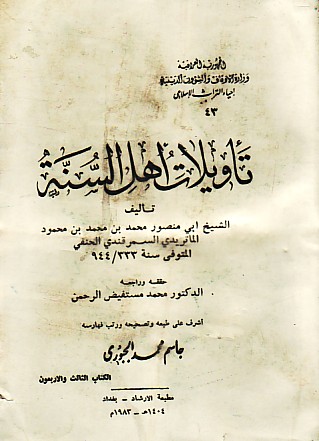 الجمهورية العراقية
وزارة الاوقاف والشؤون الدينية
احياء التراث الاسلامي
٤٣
تأويلات أهل السنة
تاليف
الشيخ ابي منصور محمد بن محمد بن محمود
الماتريدي السمرقندي الحنفي
المتوفى سنة ٩٤٤/٣٣٣
حققه وراجعه
الدكتور محمد مستفيض الرحمن
اشرف على طبعه وتصحيحه ورتب فهارسه
جاسم محمد الجبوري
الكتاب الثالث والاربعون
مطبعة الارشاد - بغداد
١٤٠٤هـ - ١٩٨٣م